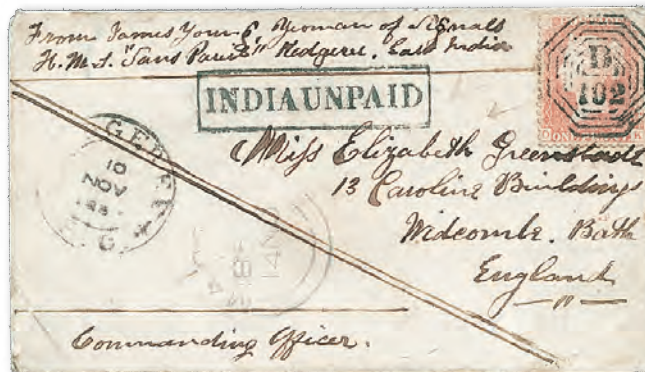 From James Young, Yeoman of Signals
H. M. S. "Sans Pareil" Hedgeree. East India
INDIA UNPAID
B
102
GEDGEE
NOV
Miss Elizabeth Greenstadt
13 Caroline Buildings
Widcombe. Bath
England
Commanding Officer.